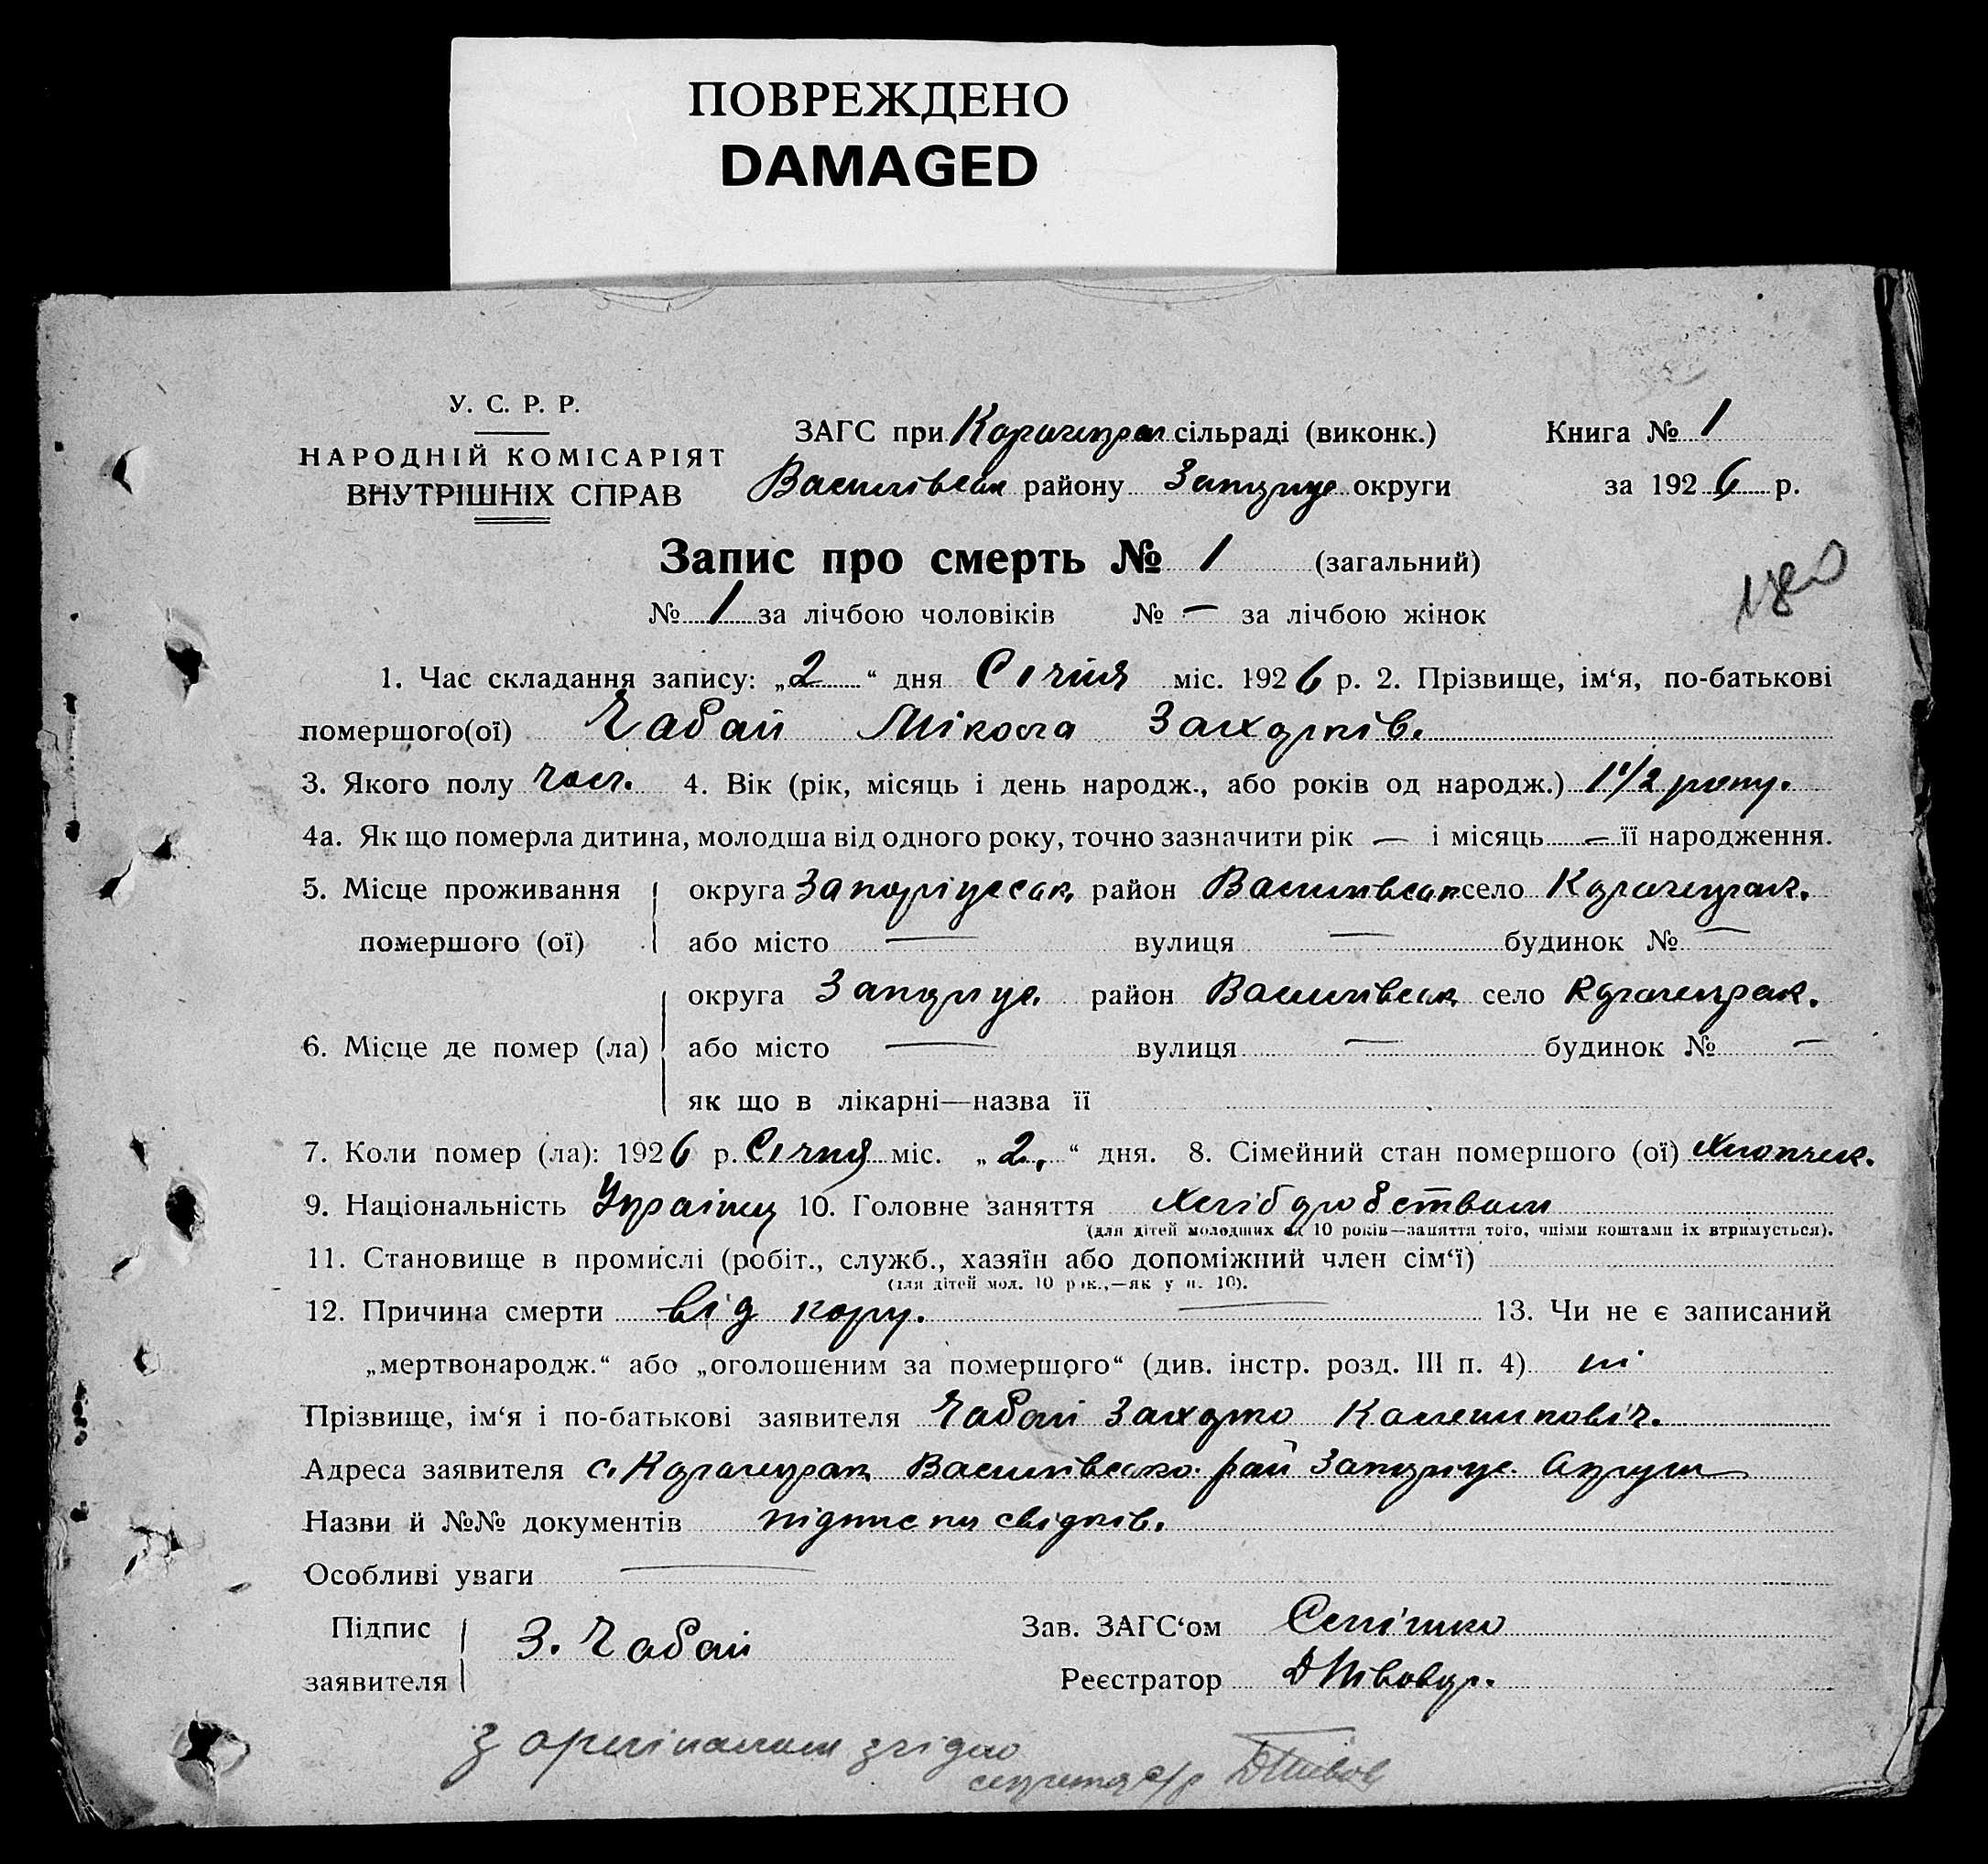 ПОВРЕЖДЕНО
DAMAGED
У. С. Р. Р.
НАРОДНІЙ КОМІСАРІЯТ
ВНУТРІШНІХ СПРАВ
ЗАГС при Карачекрак сільраді (виконк.) Книга № 1
Василівськ району Запоріже округи за 1926 р.
Запис про смерть № 1 (загальний)
180
№ 1 за лічбою чоловіків № — за лічбою жінок
1. Час складання запису: „2“ дня Січня міс. 1926 р. 2. Прізвище, ім‘я, по-батькові
помершого(ої) Чабан Мікола Захарків.
3. Якого полу чол. 4. Вік (рік, місяць і день народж., або років од народж.) 1 1/2 року.
4а. Як що померла дитина, молодша від одного року, точно зазначити рік — і місяць — її народження.
5. Місце проживання округа Запоріжськ. район Василівськ село Карачекрак.
помершого (ої) або місто — вулиця — будинок № —
округа Запоріже. район Василівськ село Карачекрак.
6. Місце де помер (ла) або місто — вулиця — будинок № —
як що в лікарні—назва її
7. Коли помер (ла): 1926 р. Січня міс. „2.“ дня. 8. Сімейний стан помершого (ої) Хлопчик.
9. Національність Україн. 10. Головне заняття Хліборобством
(для дітей молодших од 10 років—заняття того, чиїми коштами їх втримується).
11. Становище в промислі (робіт., служб., хазяїн або допоміжний член сім‘ї)
(для дітей мол. 10 рок.,—як у п. 10).
12. Причина смерти від кору. — 13. Чи не є записаний
„мертвонародж.“ або „оголошеним за помершого“ (див. інстр. розд. III п. 4) ні
Прізвище, ім‘я і по-батькові заявителя Чабан Захарко Каленикович.
Адреса заявителя с. Карачекрак Василівсько. рай Запоріже. Округи
Назви й №№ документів підписки свідків.
Особливі уваги —
Підпис заявителя З. Чабан
Зав. ЗАГС‘ом
Реєстратор
З оригіналом згідно
секретар с/р